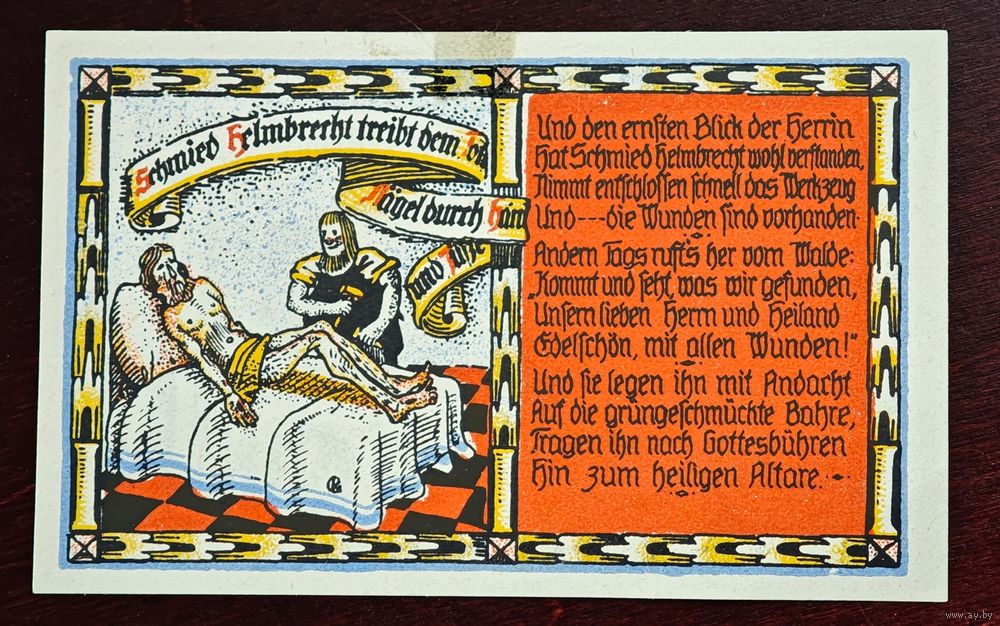 Schmied Helmbrecht treibt dem
Nägel durch
und
Und den ernsten Blick der Herrin
Hat Schmied Helmbrecht wohl verstanden,
Nimmt entschlossen schnell das Werkzeug
Und --- die Wunden sind vorhanden.
Andern Tags ruft's her vom Walde:
„Kommt und seht, was wir gefunden,
Unsern lieben Herrn und Heiland
Edelschön, mit allen Wunden!"
Und sie legen ihn mit Andacht
Auf die grüngeschmückte Bahre,
Tragen ihn nach Gottesbühren
Hin zum heiligen Altare.
www.ay.by